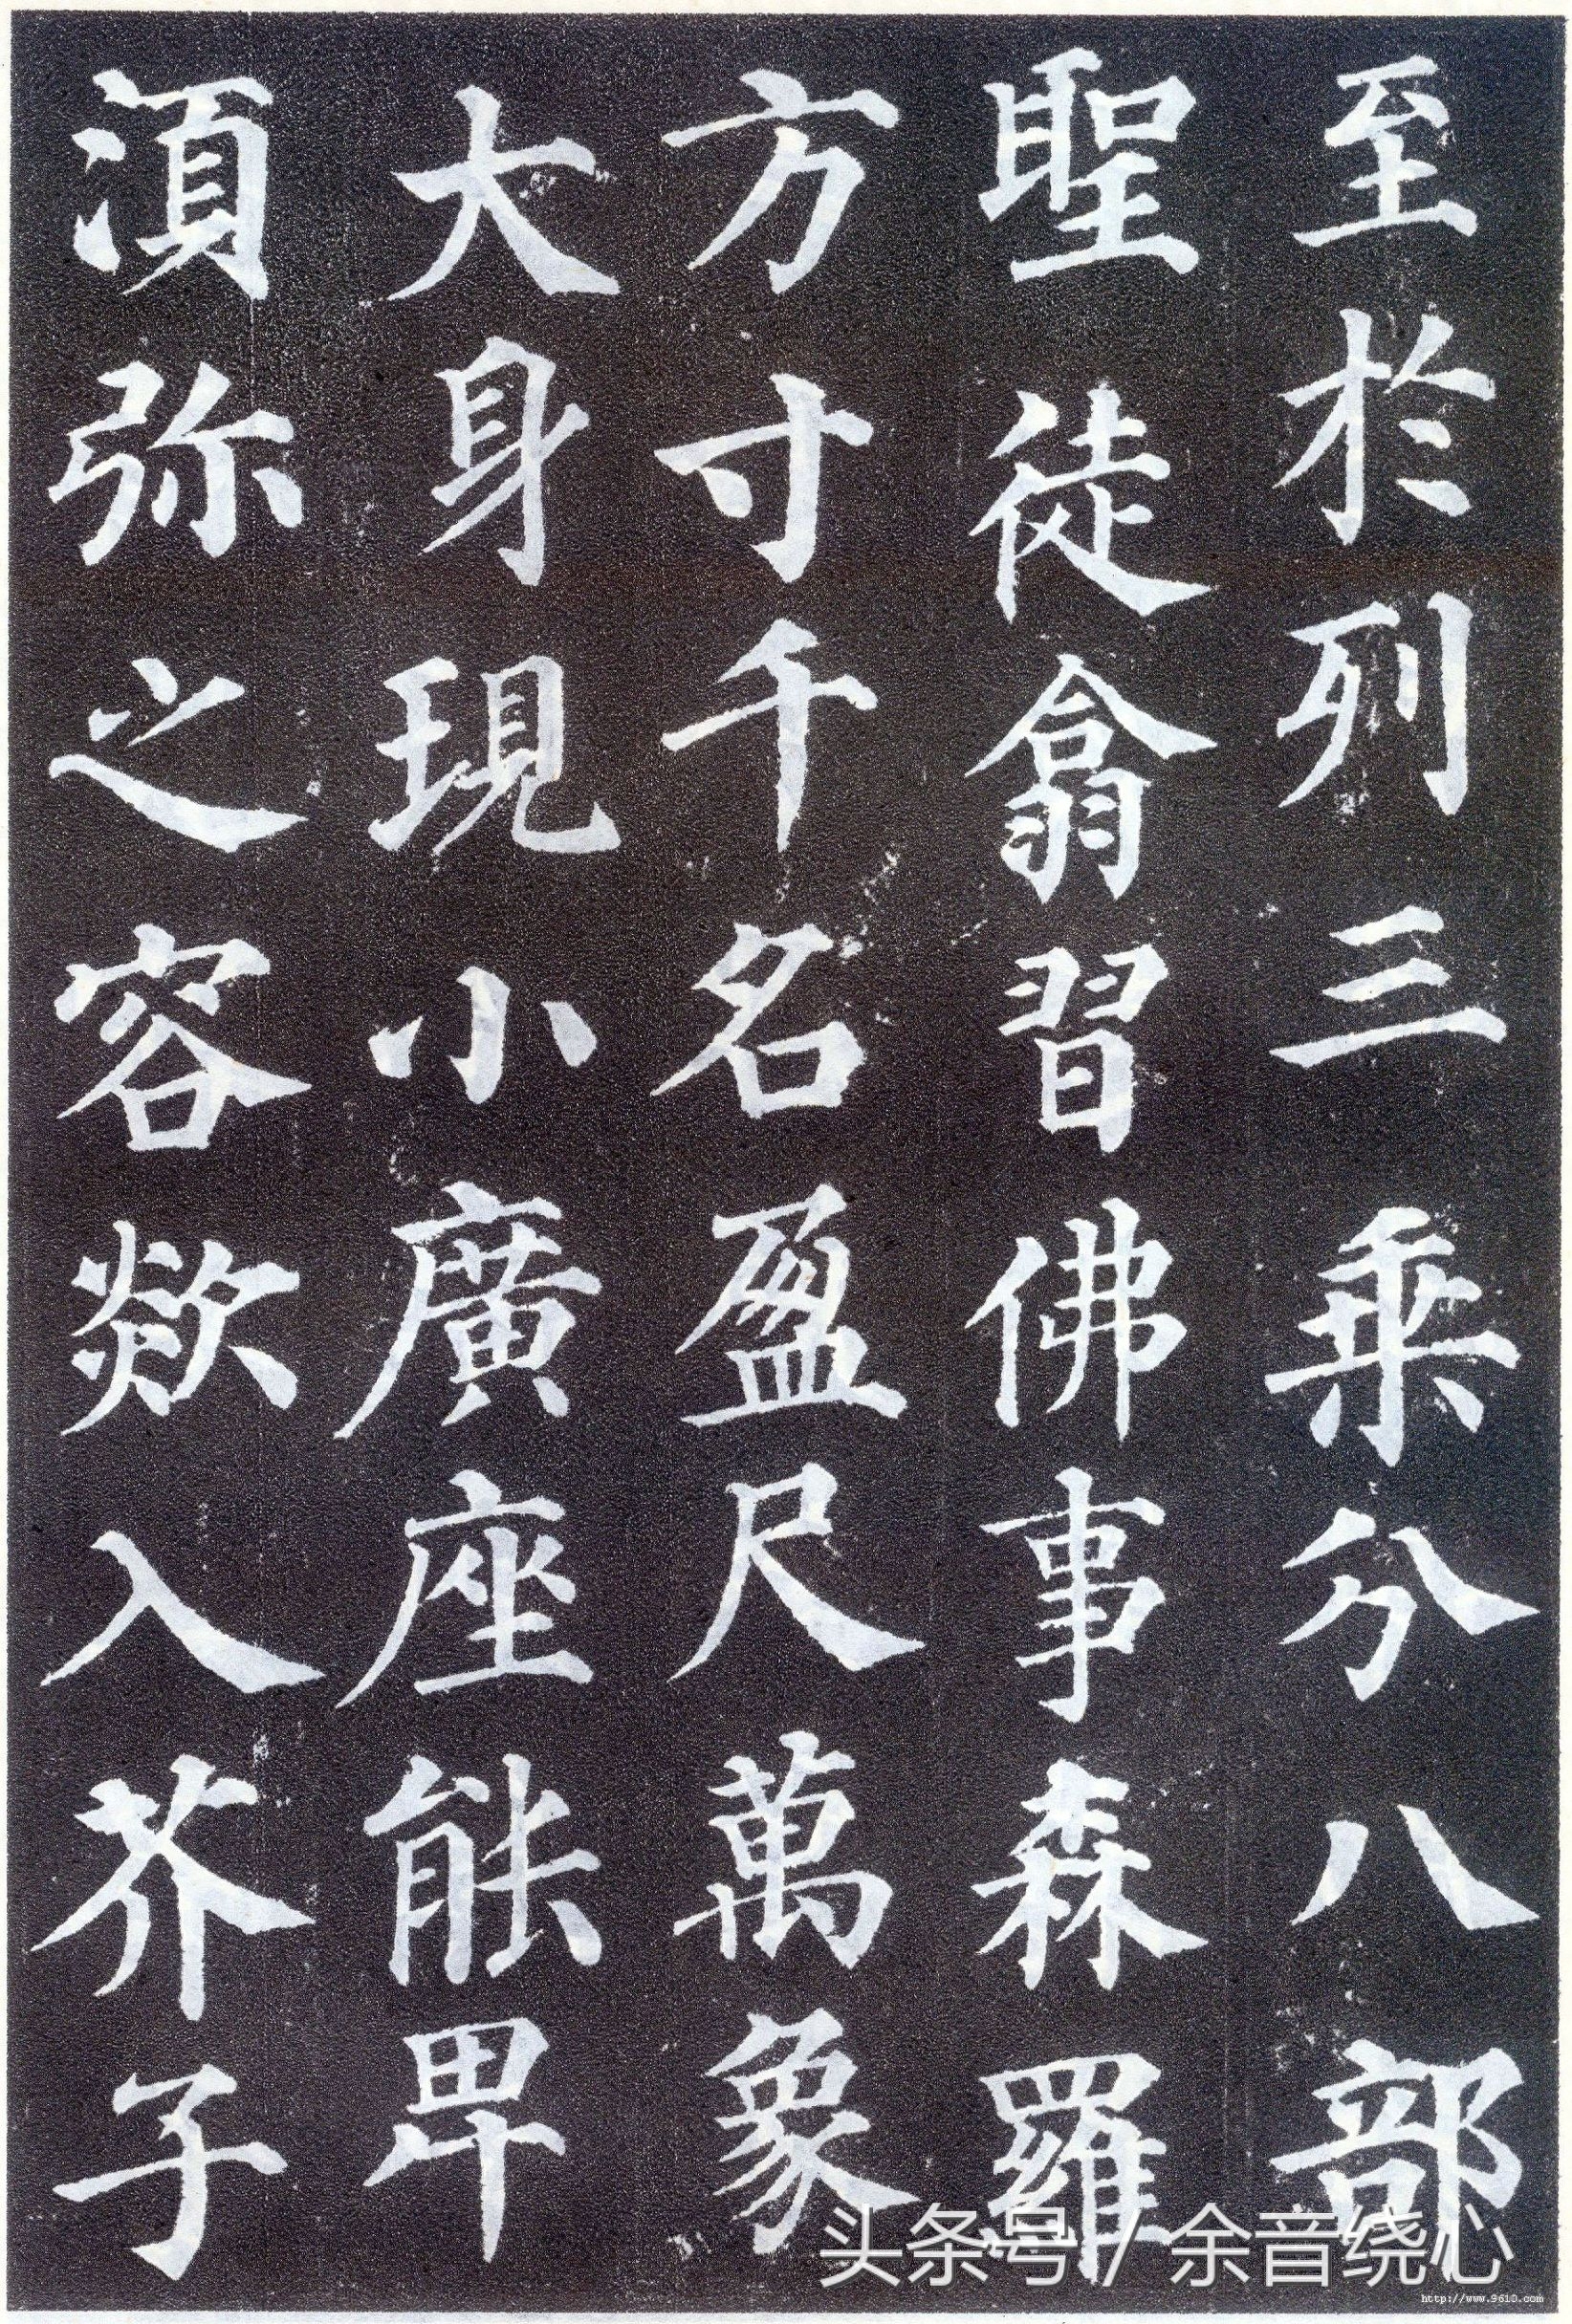 至於列三乘分八部
聖徒翕習佛事森羅
方寸千名盈尺萬象
大身現小廣座能卑
湏弥之容欻入芥子
头条号 / 余音绕心
http://www.9610.com